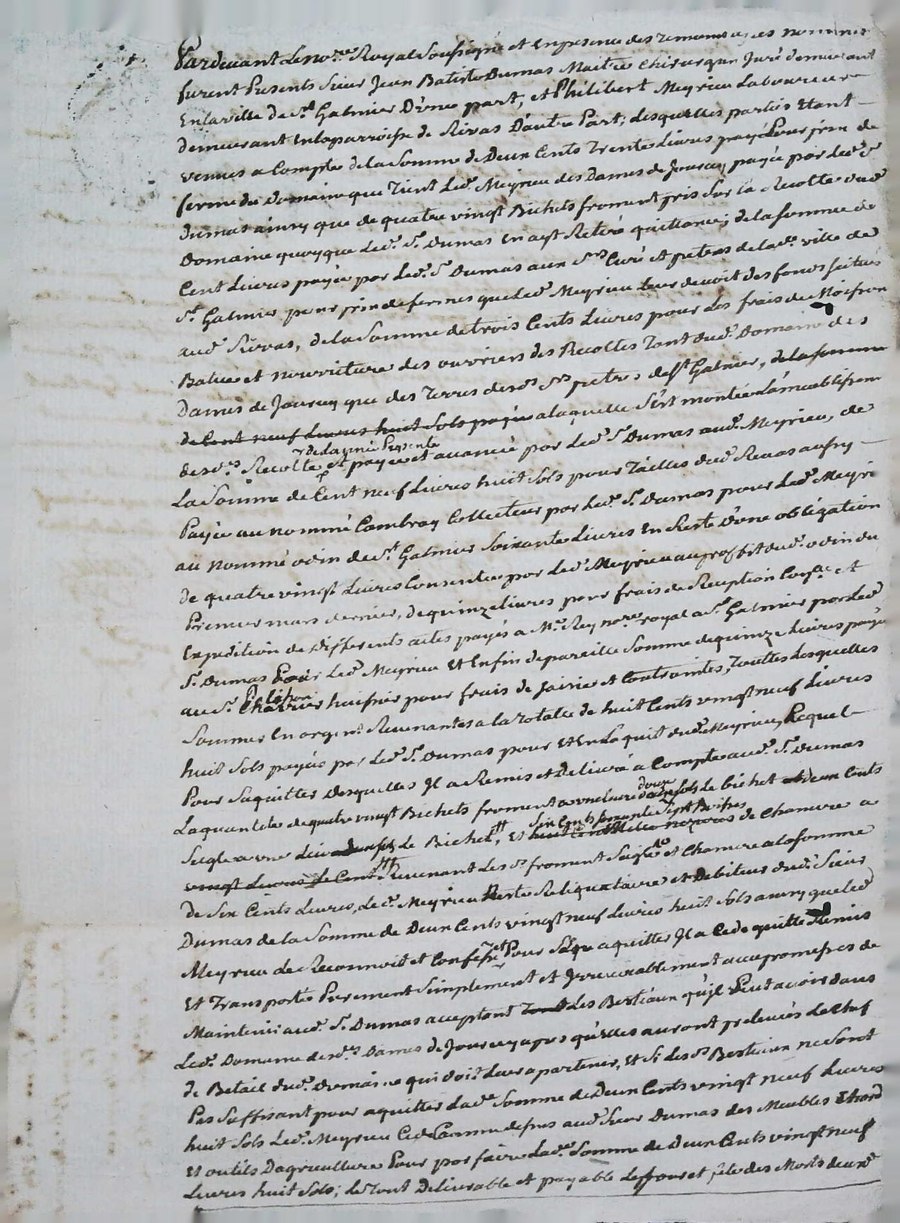 Pardevant Le no.re Royal Soussigné et En presence des temoins
furent Presents Sieur Jean Batiste Dumas Maitre Chirurgien Juré demeurant
En la ville de S.t Galmier D'une part, et Philibert Meyrieu Laboureur
demeurant En la parroisse de Rivas D'autre Part; Lesquelles parties Etant
venues a Compte de la Somme de Deux Cents Trente Livres payé Pour prix de
ferme du Domaine que Tient Led. Meyrieu des Dames de Joursey, payée par Led. S.r
Dumas ainsy que de quatre vingt Bichets froment pris Sur la Recolte dud.
Domaine quoyque Led. S.r Dumas En ayt Retiré quittance; de la Somme de
Cent Livres payée par Led. S.r Dumas aux S.rs Curé et pretres de lad. ville de
S.t Galmier pour prix de fermes que Led. Meyrieu Leur devoit des fonds Situés
aud. Rivas, de la Somme de trois Cents Livres pour Les frais de Moisson
Batue et nourriture des ouvriers des Recoltes Tant dud. Domaine des
Dames de Joursey que des Terres desd. S.rs pretres de S.t Galmier, de la Somme
de Cent neuf Livres huit Sols payée a laquelle S'est montée
desd.es Recolte de la année Presente et payée et avancée par Led. S.r Dumas aud. Meyrieu, de
La Somme de Cent neuf Livres huit Sols pour Tailles dud. Rivas aussy
Payée au nommé Combray Collecteur par Led. S.r Dumas pour Led. Meyrieu
au nommé odin de S.t Galmier Soixante Livres En Reste D'une obligation
de quatre vingt Livres Consentie par Led. Meyrieu au proffit dud. odin du
Premier mars dernier, de quinze Livres pour frais de Reception et
Expedition de Differents actes payés a M.e Rey no.re royal a S.t Galmier par Led.
S.r Dumas Pour Led. Meyrieu Et Enfin de pareille Somme de quinze Livres payée
au S.r huissier pour frais de Saisie et Contraintes, Toutes Lesquelles
Sommes En argent Revenantes a la totale de huit Cents vingt neuf Livres
huit Sols payée par Led. S.r Dumas pour Et En Laquit dud. Meyrieu, Lequel
Pour S'aquitter Desquelles Il a Remis et Delivré a Compte aud. S.r Dumas
La quantité de quatre vingt Bichets froment a une Livre douze sols Le bichet deux Cents
Segle a une Livre Le Bichet, Et Six Cents soixante Sept Livres de Chanvre a
vingt Livres Le Cent Revenant Lesd. froment Seigle et Chanvre a la Somme
de Six Cents Livres, Led. Meyrieu Reste Reliquataire et Debiteur dud. Sieur
Dumas de la Somme de Deux Cents vingt neuf Livres huit Sols ainsy que Led.
Meyrieu Le Reconnoit et Confesse Et Pour S'en aquitter Il a Cedé quitté Remis
Et Transporté Purement Simplement et Irrevocablement avec promesse de
Maintenir aud. S.r Dumas acceptant Les Bestiaux qu'il Peut avoir dans
Led. Domaine desd.es Dames de Joursey apres qu'elles auront prelevés Le Chef
de Betail dud. Domaine qui doit Leur apartenir, Et Si Lesd. Bestiaux ne Sont
Pas Suffisant pour aquitter Lad. Somme de Deux Cents vingt neuf Livres
huit Sols Led. Meyrieu Cede Comme dessus aud. Sieur Dumas des Meubles
Et outils Dagriculture Pour parfaire Lad. Somme de Deux Cents vingt neuf
Livres huit Sols; Le Tout Delivrable et payable Le Jour et fete des Morts